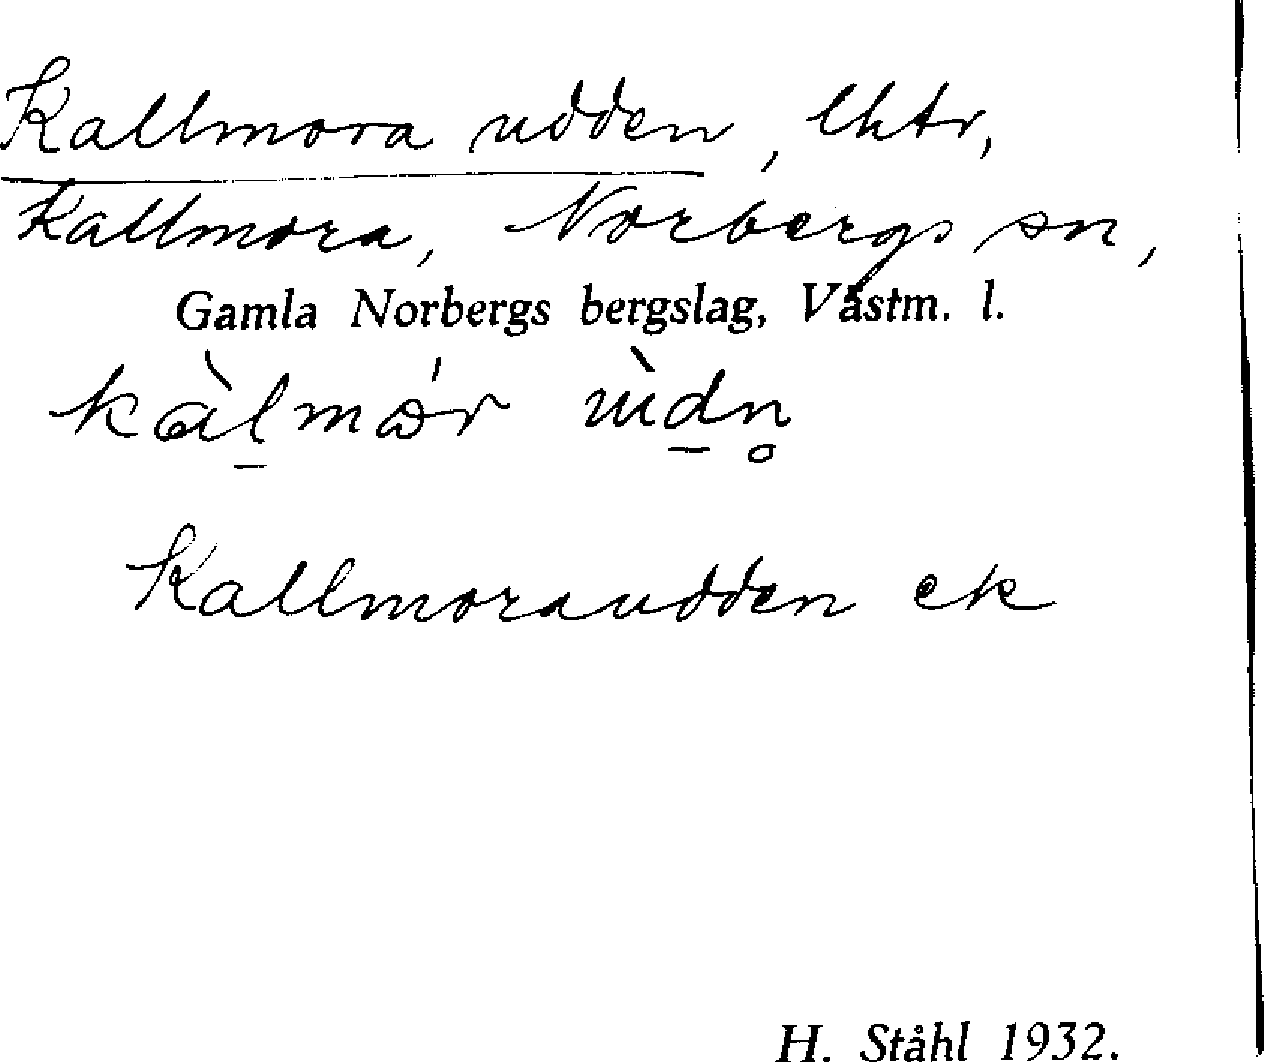 Kallmora udden, lhtr,
Kallmora, Norbergs sn,
Gamla Norbergs bergslag, Västm. l.
kàl̠mɷ́r ùd̠n̥
Kallmoraudden ek
H. Ståhl 1932.